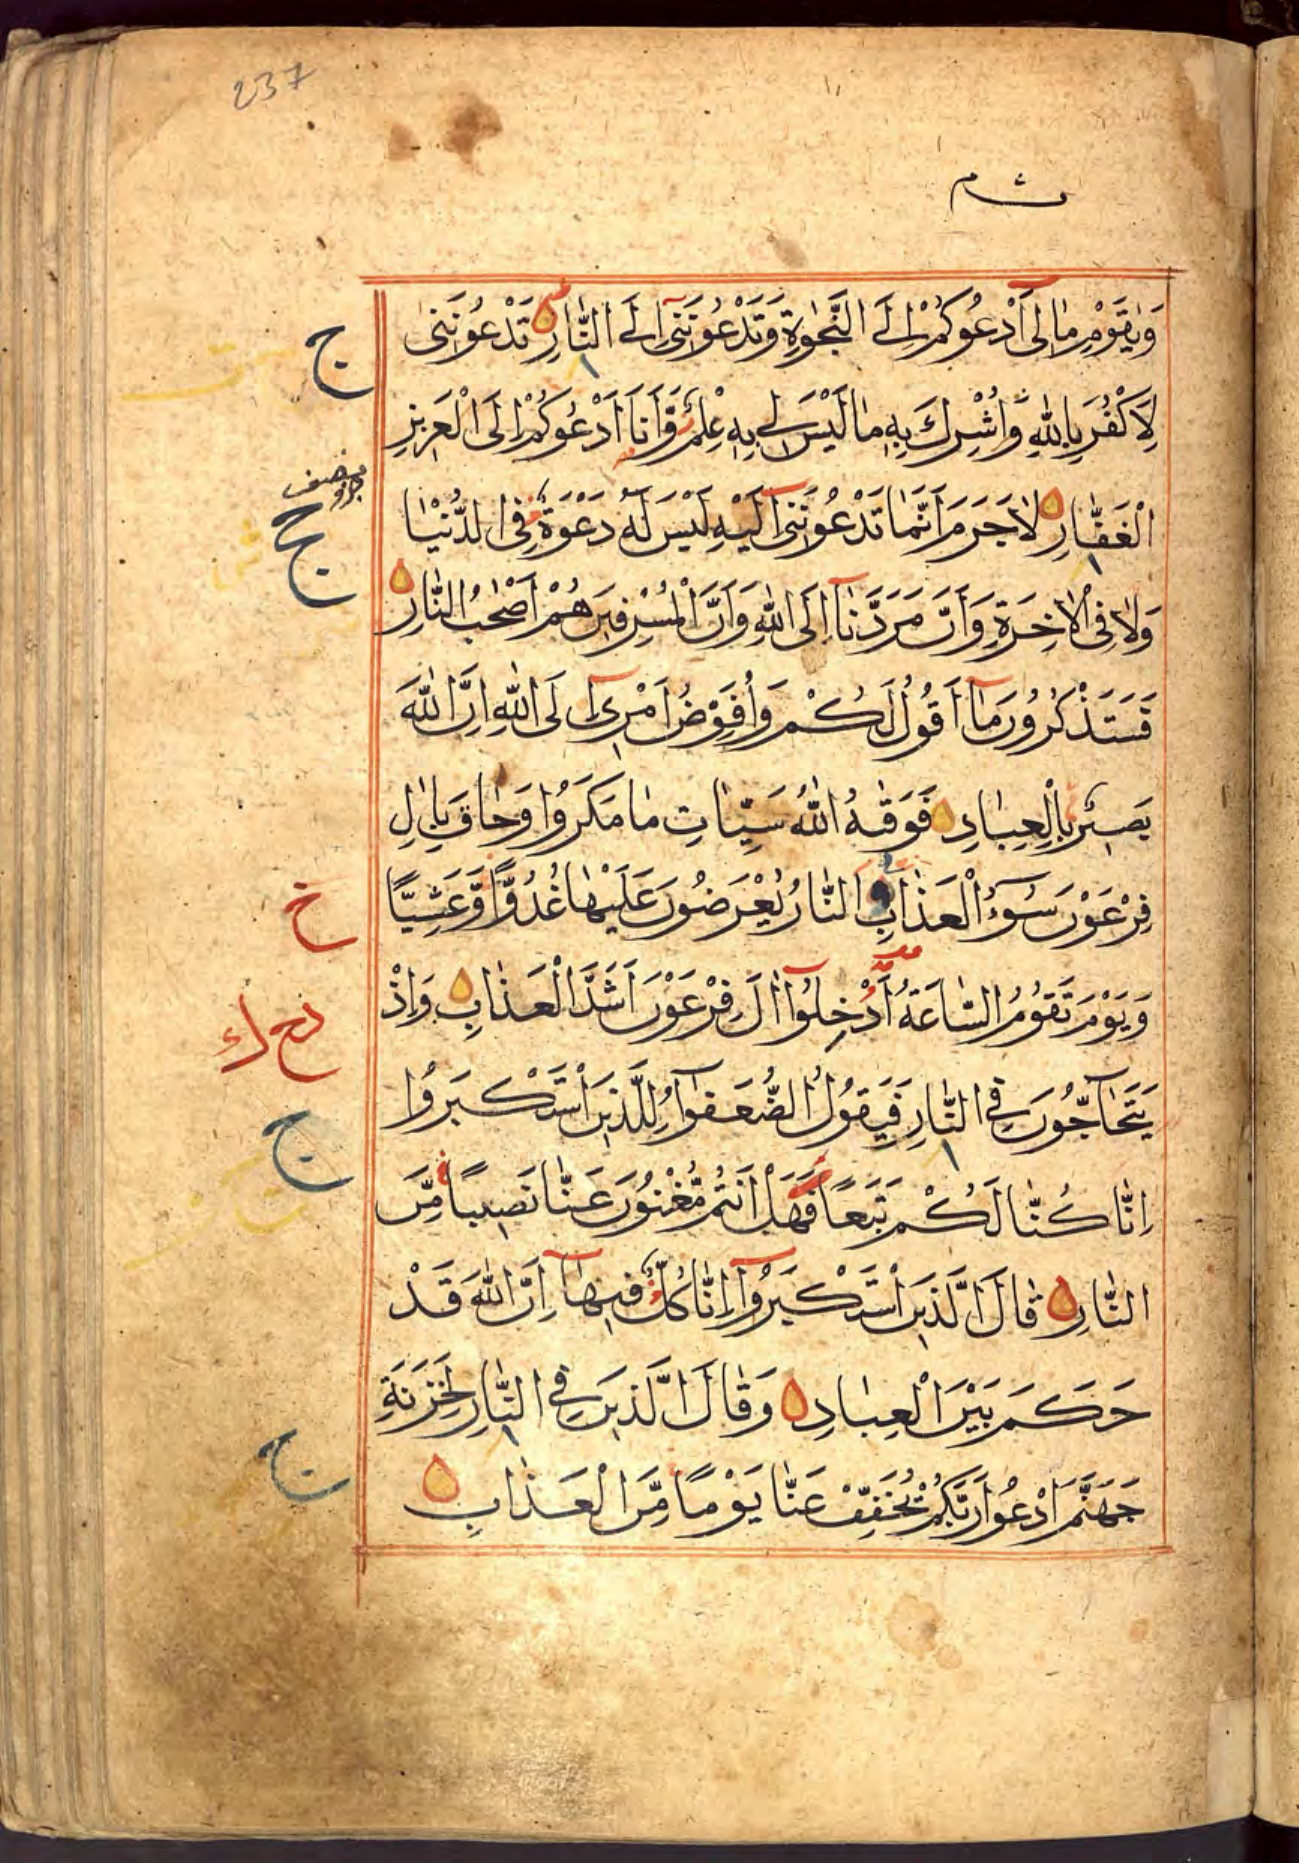 237
وَيٰقَوْمِ مٰا لِى اَدْعُوكُمْ اِلَى النَّجٰوةِ وَتَدْعُونَنِى اِلَى النّٰارِ تَدْعُونَنِى
لِاَكْفُرَ بِاللّٰهِ وَاُشْرِكَ بِهِ مٰا لَيْسَ لِى بِهِ عِلْمٌ وَّاَنَا اَدْعُوكُمْ اِلَى الْعَزِيزِ
الْغَفّٰارِ لٰا جَرَمَ اَنَّمٰا تَدْعُونَنِى اِلَيْهِ لَيْسَ لَهُ دَعْوَةٌ فِى الدُّنْيٰا
وَلٰا فِى الْاٰخِرَةِ وَاَنَّ مَرَدَّنٰا اِلَى اللّٰهِ وَاَنَّ الْمُسْرِفِينَ هُمْ اَصْحٰبُ النّٰارِ
فَسَتَذْكُرُونَ مٰا اَقُولُ لَكُمْ وَاُفَوِّضُ اَمْرِى اِلَى اللّٰهِ اِنَّ اللّٰهَ
بَصِيرٌ بِالْعِبٰادِ فَوَقٰهُ اللّٰهُ سَيِّاٰتِ مٰا مَكَرُوا وَحٰاقَ بِاٰلِ
فِرْعَوْنَ سُوءُ الْعَذٰابِ اَلنّٰارُ يُعْرَضُونَ عَلَيْهٰا غُدُوًّا وَّعَشِيًّا
وَيَوْمَ تَقُومُ السّٰاعَةُ اَدْخِلُوا اٰلَ فِرْعَوْنَ اَشَدَّ الْعَذٰابِ وَاِذْ
يَتَحٰاجُّونَ فِى النّٰارِ فَيَقُولُ الضُّعَفٰؤُا لِلَّذِينَ اسْتَكْبَرُوا
اِنّٰا كُنّٰا لَكُمْ تَبَعًا فَهَلْ اَنْتُمْ مُّغْنُونَ عَنّٰا نَصِيبًا مِّنَ
النّٰارِ قٰالَ الَّذِينَ اسْتَكْبَرُوا اِنّٰا كُلٌّ فِيهٰا اِنَّ اللّٰهَ قَدْ
حَكَمَ بَيْنَ الْعِبٰادِ وَقٰالَ الَّذِينَ فِى النّٰارِ لِخَزَنَةِ
جَهَنَّمَ ادْعُوا رَبَّكُمْ يُخَفِّفْ عَنّٰا يَوْمًا مِّنَ الْعَذٰابِ